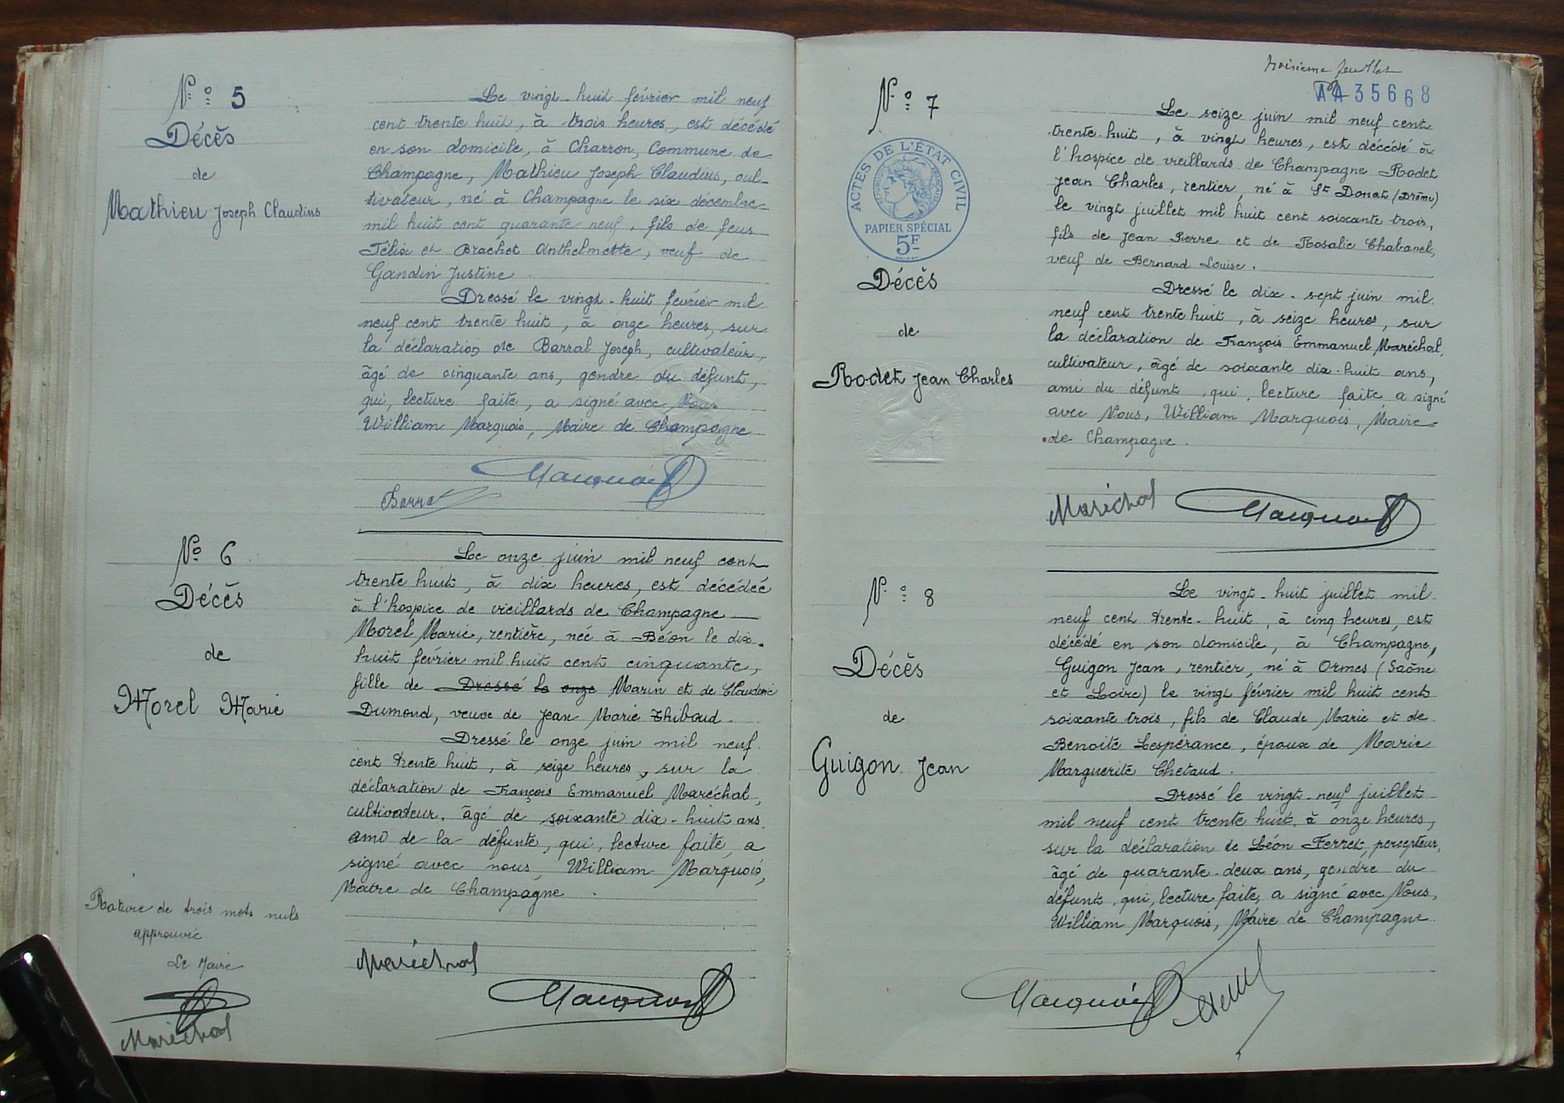 N° 5
Décès
de
Mathieu Joseph Claudius
Le vingt-huit février mil neuf
cent trente huit, à trois heures, est décédé
en son domicile, à Charron, Commune de
Champagne, Mathieu Joseph Claudius, cul-
tivateur, né à Champagne le six décembre
mil huit cent quarante neuf, fils de feus
Félix et Brachet Anthelmette, veuf de
Gandin Justine
Dressé le vingt-huit février mil
neuf cent trente huit, à onze heures, sur
la déclaration de Barral Joseph, cultivateur,
âgé de cinquante ans, gendre du défunt,
qui, lecture faite, a signé avec Nous
William Marquois, Maire de Champagne
Marquois
Barral
N° 6
Décès
de
Morel Marie
Le onze juin mil neuf cent
trente huit, à dix heures, est décédée
à l'hospice de vieillards de Champagne
Morel Marie, rentière, née à Béon le dix-
huit février mil huit cent cinquante,
fille de Dressé le onze Marin et de Claudine
Dumond, veuve de Jean Marie Thibaud.
Dressé le onze juin mil neuf
cent trente huit, à seize heures, sur la
déclaration de François Emmanuel Maréchal,
cultivateur, âgé de soixante dix-huit ans
ami de la défunte, qui, lecture faite, a
signé avec nous, William Marquois,
Maire de Champagne.
Rature de trois mots nuls
approuvée
Le Maire
Maréchal
Maréchal
Marquois
troisième feuillet
AA35668
N° 7
ACTES DE L'ÉTAT CIVIL
PAPIER SPÉCIAL
5F
Décès
de
Rodet Jean Charles
Le seize juin mil neuf cent
trente huit, à vingt heures, est décédé à
l'hospice de vieillards de Champagne Rodet
Jean Charles, rentier, né à St Donat (Drôme)
le vingt juillet mil huit cent soixante trois,
fils de Jean Pierre et de Rosalie Chabanel,
veuf de Bernard Louise.
Dressé le dix-sept juin mil
neuf cent trente huit, à seize heures, sur
la déclaration de François Emmanuel Maréchal,
cultivateur, âgé de soixante dix-huit ans,
ami du défunt, qui, lecture faite a signé
avec Nous, William Marquois, Maire
de Champagne.
Maréchal
Marquois
N° 8
Décès
de
Guigon Jean
Le vingt-huit juillet mil
neuf cent trente-huit, à cinq heures, est
décédé en son domicile, à Champagne,
Guigon Jean, rentier, né à Ormes (Saône
et Loire) le vingt février mil huit cent
soixante trois, fils de Claude Marie et de
Benoîte Lespérance, époux de Marie
Marguerite Chetaud.
Dressé le vingt-neuf juillet
mil neuf cent trente huit, à onze heures,
sur la déclaration de Léon Ferret, percepteur,
âgé de quarante-deux ans, gendre du
défunt, qui, lecture faite, a signé avec Nous,
William Marquois, Maire de Champagne
Marquois